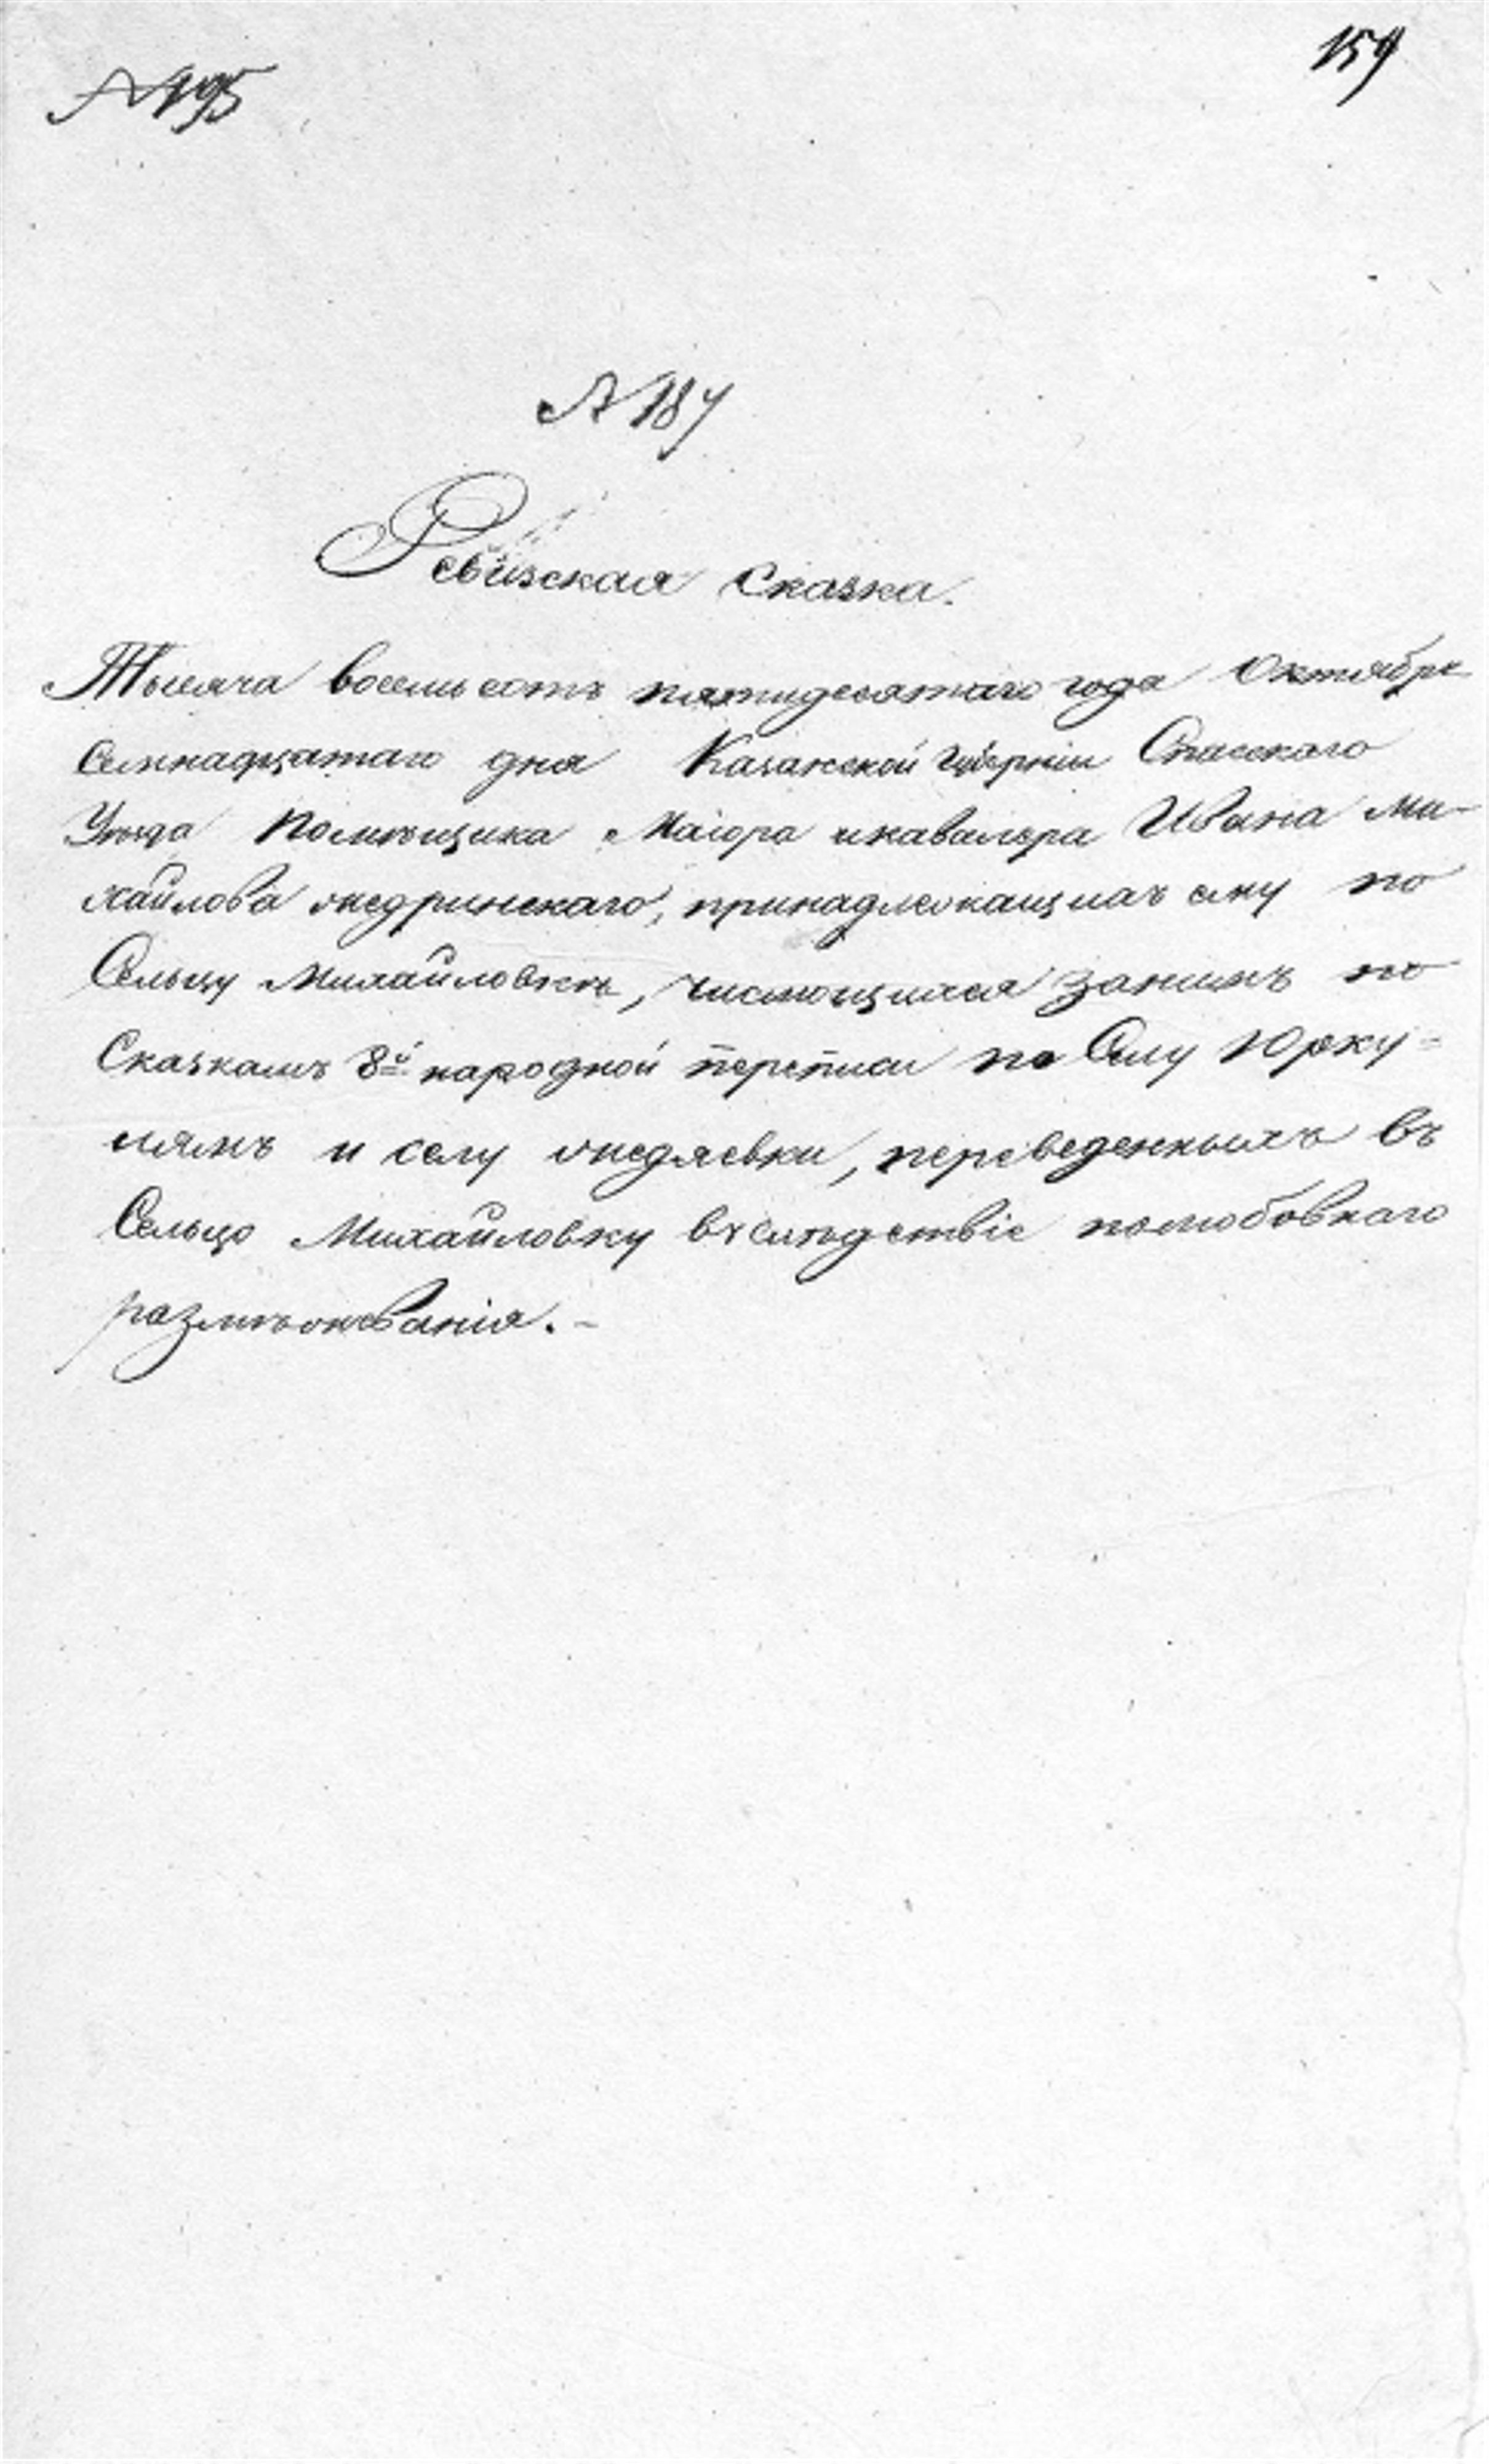 № 195
159
№ 187
Ревизская Сказка.
Тысяча восемь сотъ пятидесятаго года Октября
Семнадцатаго дня Казанской Губерніи Спасскаго
Уѣзда Помѣщика Маіора и кавалера Ивана Ми-
хайлова Жедринскаго, принадлежащихъ ему по
Сельцу Михайловкѣ, числющихся занимъ по
Сказкамъ 8й народной переписи по Селу Юрку-
лямъ и селу Жедяевки, переведенныхъ въ
Сельцо Михайловку въслѣдствіе полюбовнаго
размѣжеванія. -